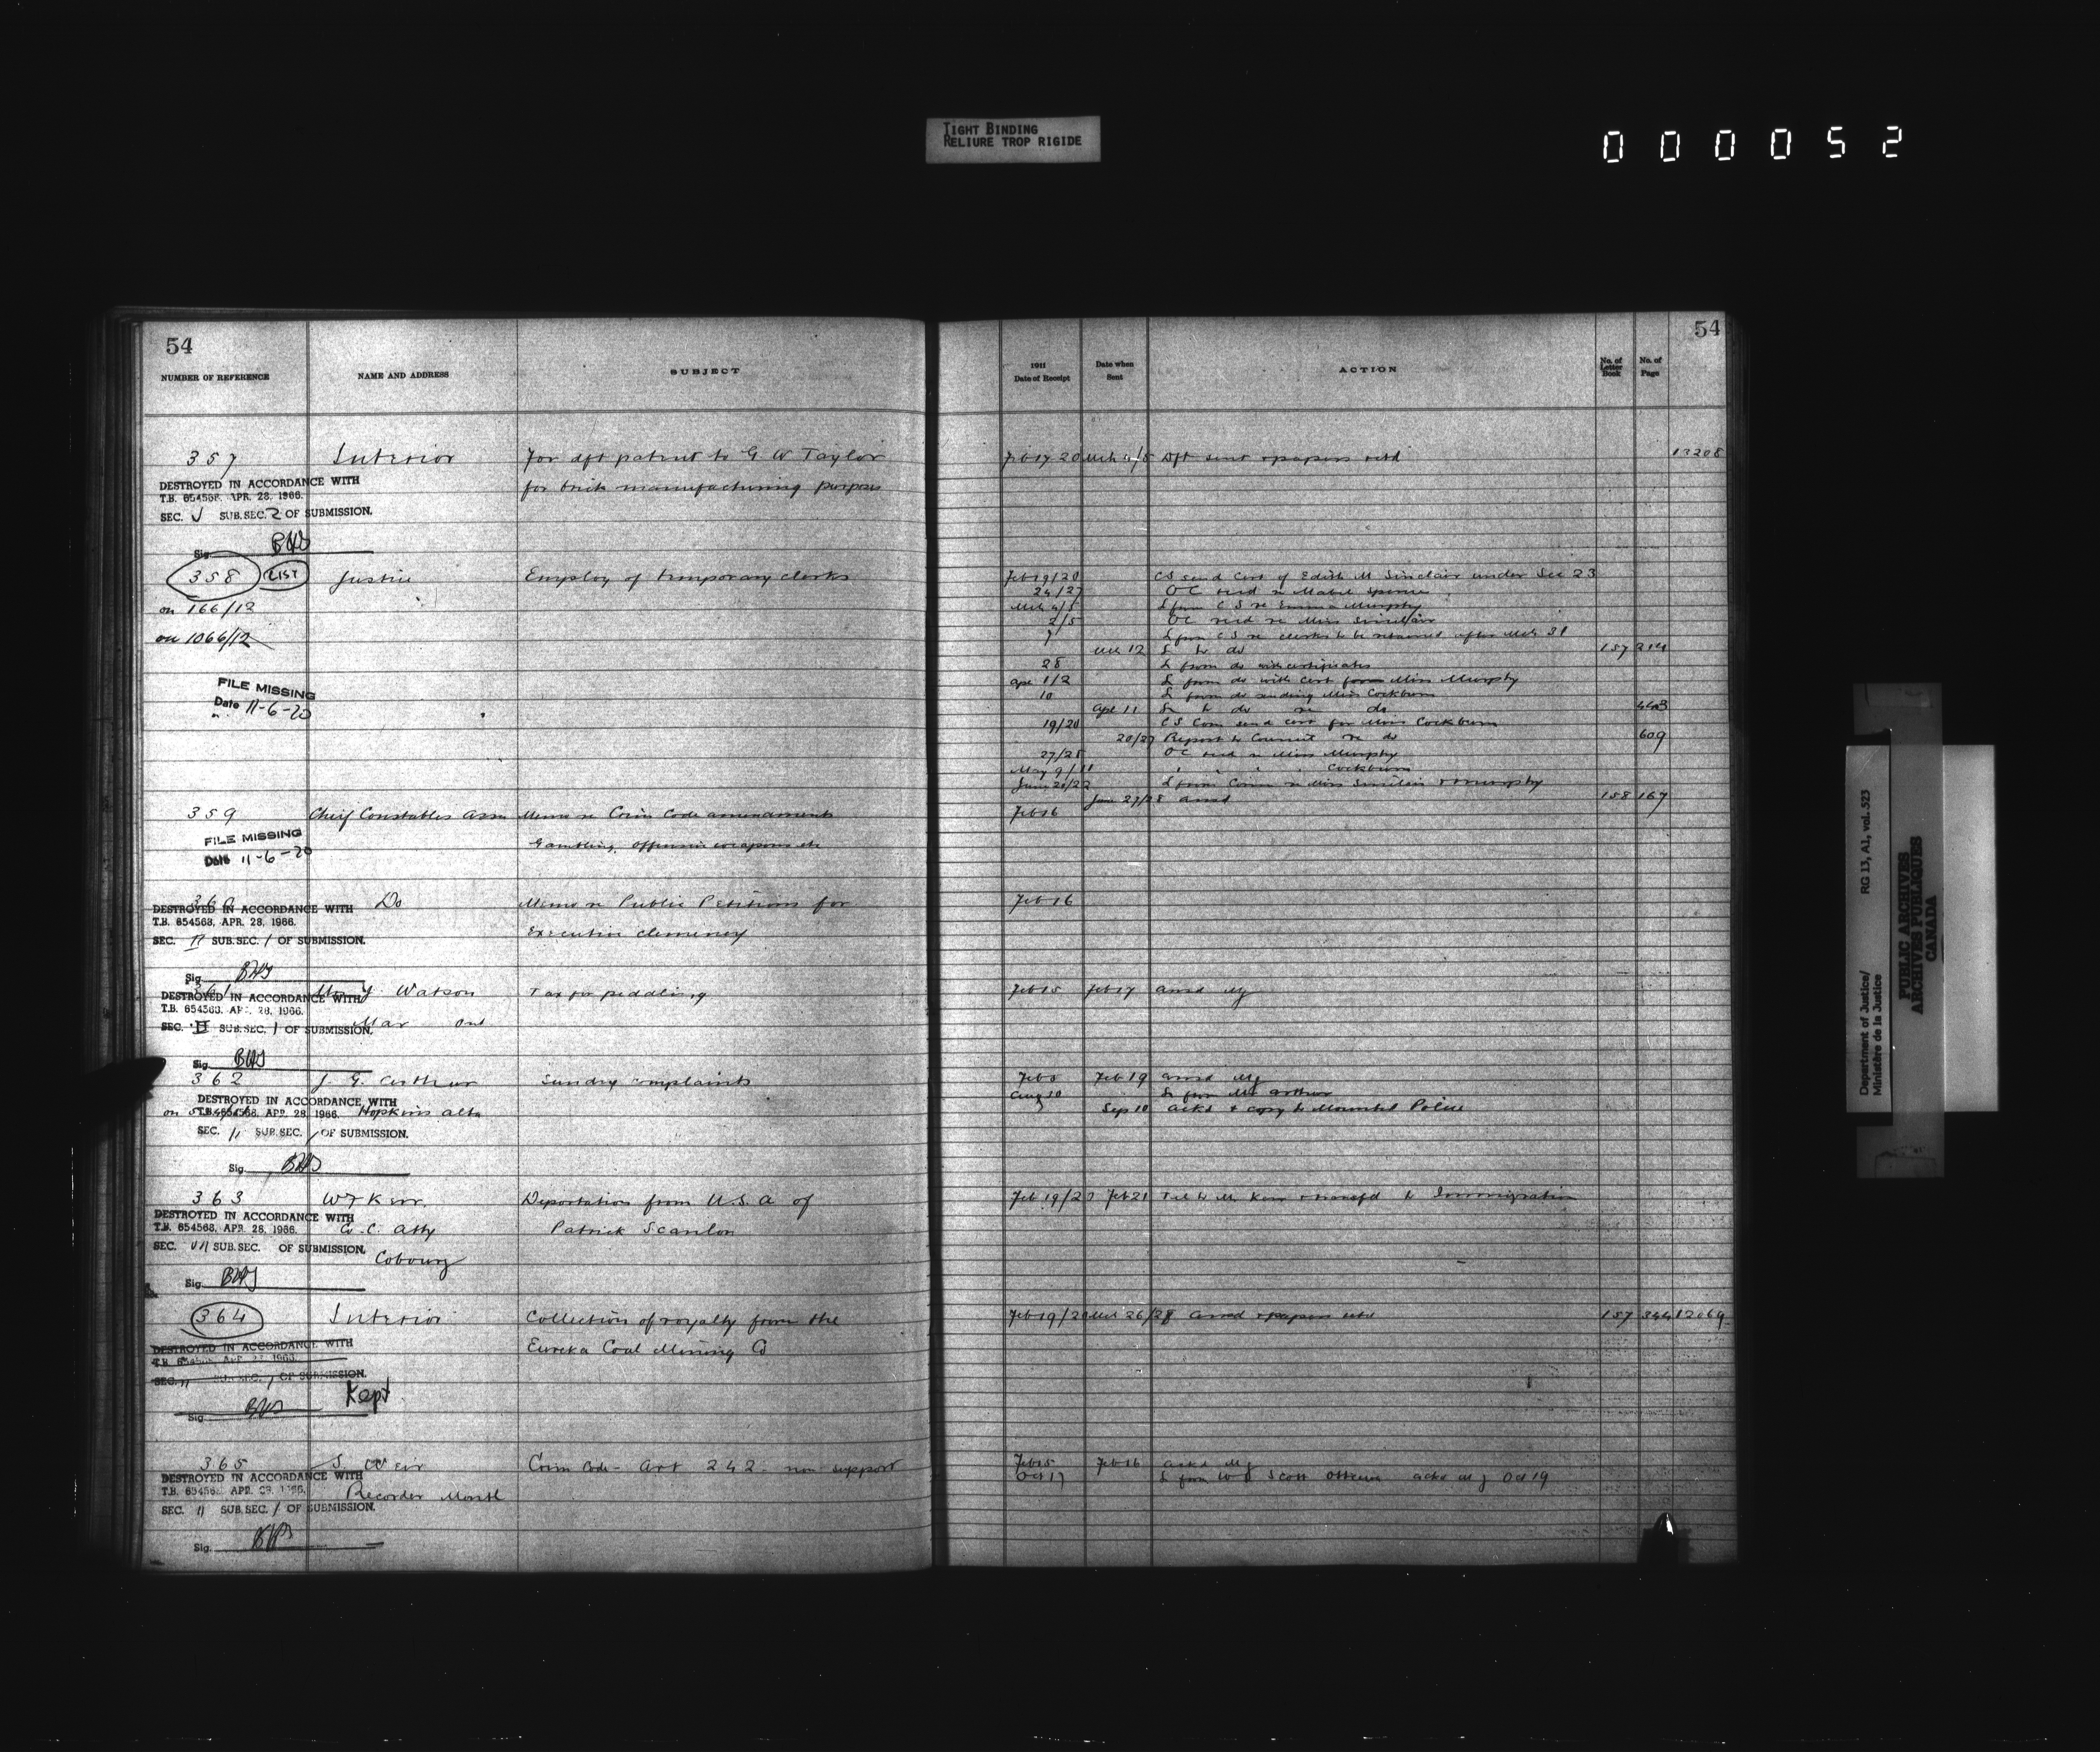 TIGHT BINDING
RELIURE TROP RIGIDE
000052
54
NUMBER OF REFERENCE
NAME AND ADDRESS
SUBJECT
357
Interior
For dft patent to G W Taylor
for brick manufacturing purposes
DESTROYED IN ACCORDANCE WITH
T.B. 654568. APR. 28, 1966.
SEC. V SUB.SEC. 2 OF SUBMISSION.
Sig.
358
LIST
Justice
Employ of temporary clerks
on 166/12
on 1066/12
FILE MISSING
Date 11-6-20
359
Chief Constables Assn
Memo re Crim Code amendments
Gambling, offensive weapons etc
FILE MISSING
Date 11-6-20
360
Do
Memo re Public Petitions for
Executive clemency
DESTROYED IN ACCORDANCE WITH
T.B. 654568, APR. 28, 1966.
SEC. II SUB.SEC. 1 OF SUBMISSION.
Sig.
361
Watson
Tax for peddling
DESTROYED IN ACCORDANCE WITH
T.B. 654568. APR. 28, 1966.
SEC. II SUB.SEC. 1 OF SUBMISSION.
Mar Ont
Sig.
362
J. G. Arthur
Sundry complaints
DESTROYED IN ACCORDANCE WITH
T.B. 654568. APR. 28, 1966.
Hopkins Alta
SEC. 11 SUB.SEC. 1 OF SUBMISSION.
Sig.
363
W F Kerr
Deportation from U.S.A of
DESTROYED IN ACCORDANCE WITH
T.B. 654568, APR. 28, 1966.
Co. C. Atty
Patrick Scanlon
SEC. VII SUB.SEC. OF SUBMISSION.
Cobourg
Sig.
364
Interior
Collection of royalty from the
Eureka Coal Mining Co
DESTROYED IN ACCORDANCE WITH
SEC. 11 SUB.SEC. 1 OF SUBMISSION.
Kept
Sig.
365
S. Weir
Crim Code - Art 242 non support
DESTROYED IN ACCORDANCE WITH
Recorder Montl
SEC. 11 SUB.SEC. 1 OF SUBMISSION.
Sig.
54
1911
Date of Receipt
Date when
Sent
ACTION
No. of
Letter
Book
No. of
Page
Feb 17 20 Mch 4/5 Dft sent & papers retd 13208
Feb 19/20 CS send cert of Edith M Sinclair under Sec 23
24/27 OC recd re Mabel
Mch 4/5 L from C S re Emma Murphy
2/5 OC recd re Miss Sinclair
7 L from C S re clerks to be retained after Mch 31
Mch 12 L to do 157 214
28 L from do with certificates
Apr 1/2 L from do with cert for Miss Murphy
10 L from do sending Miss Cockburn
Apr 11 L to do re do 443
19/20 CS Com send cert for Miss Cockburn
20/27 Report to Council re do 609
27/28 OC recd re Miss Murphy
May 9/11 " " " Cockburn
June 20/22 L from Comn re Miss Sinclair & Murphy
June 27/28 ansd 158 167
Feb 16
Feb 16
Feb 15 Feb 17 ansd
Feb 8 Feb 19 ansd
Aug 10 L from Mr Arthur
Sep 10 ackd & copy to Mounted Police
Feb 19/20 Feb 21 Tel to Mr Kerr & transfd to Immigration
Feb 19/20 Mch 26/28 ansd & papers retd 157 344 12069
Feb 15 Feb 16 ackd
Oct 17 L from W D Scott Ottawa ackd Oct 19
Department of Justice/
Ministère de la Justice
RG 13, A1, vol. 523
PUBLIC ARCHIVES
ARCHIVES PUBLIQUES
CANADA